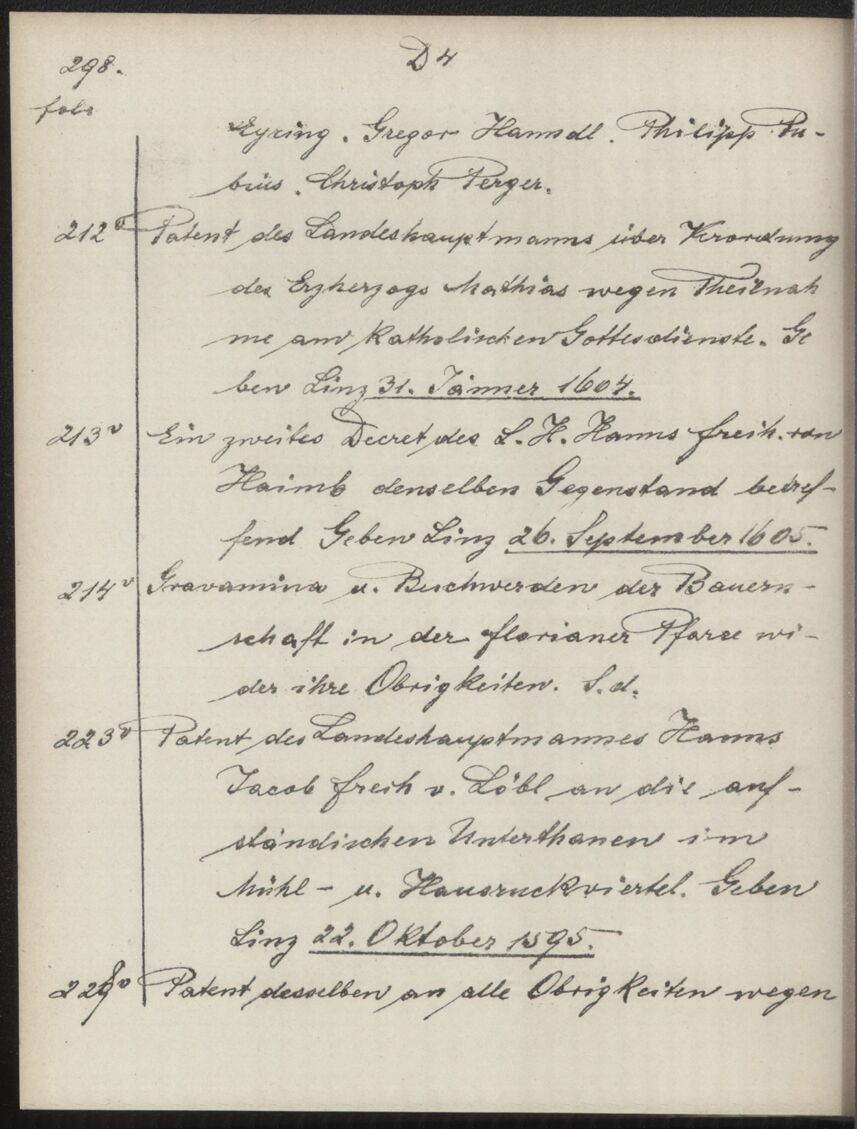 298.
D4
folo
Eyring. Gregor Hanndl. Philipp Pu-
bius. Christoph Perger.
212v Patent des Landeshauptmanns über Verordnung
des Erzherzogs Mathias wegen Theilnah
me am katholischen Gottesdienste. Ge
ben Linz 31. Jänner 1604.
213v Ein zweites Decret des L. H. Hanns freih. von
Haimb denselben Gegenstand betref-
fend Geben Linz 26. September 1605.
214v Gravamina u. Beschwerden der Bauern-
schaft in der florianer Pfarre wi-
der ihre Obrigkeiten. S. d.
223v Patent des Landeshauptmannes Hanns
Jacob freih v. Löbl an die auf-
ständischen Unterthanen im
Mühl- u. Hausruckviertel. Geben
Linz 22. Oktober 1595.
Patent desselben an alle Obrigkeiten wegen